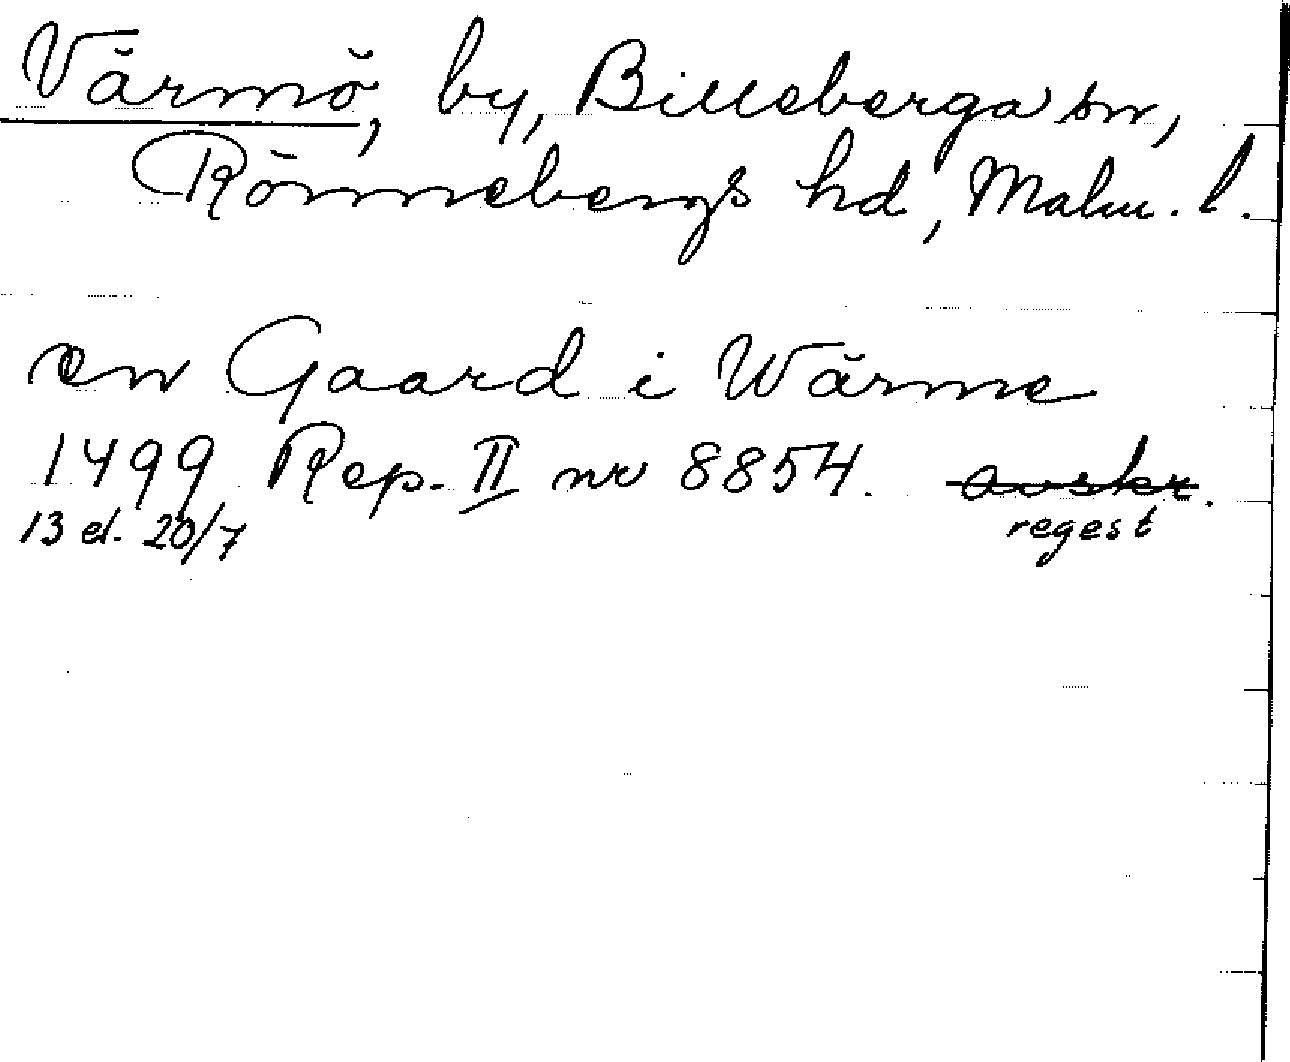 Värmö, by, Billeberga sn,
Rönnebergs hd, Malm. l.
en Gaard i Wärme
1499 Rep. II nr 8854. avskr.
13 el. 20/7 regest